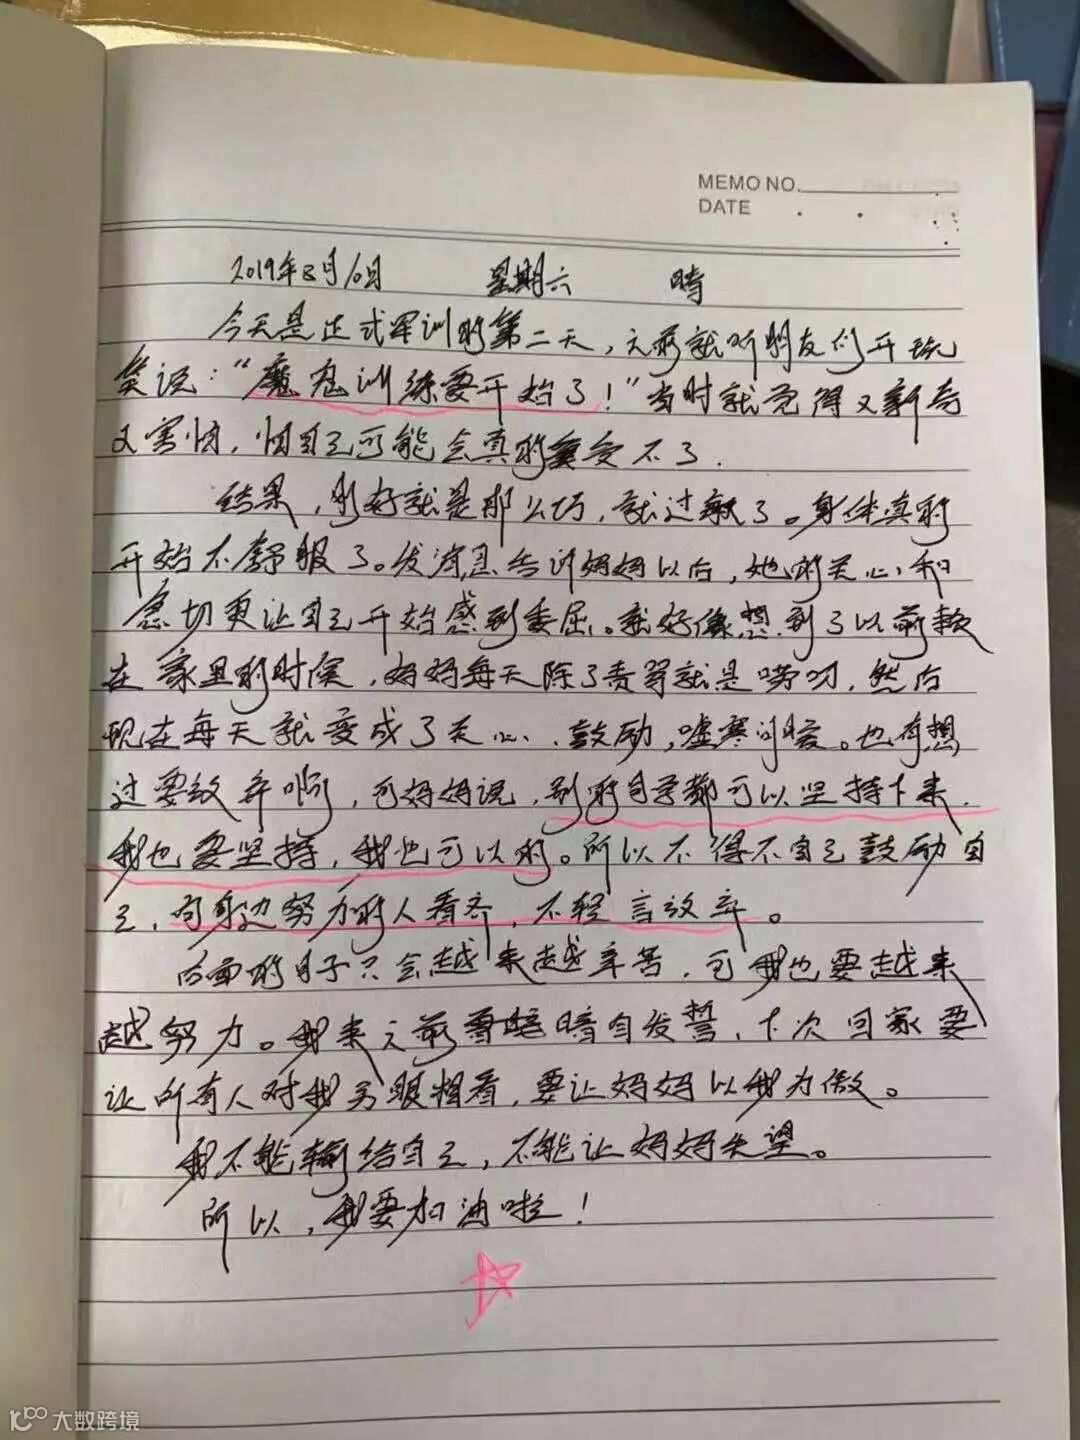 MEMO NO.
DATE
2019年8月10日 星期六 晴
今天是正式军训的第二天，之前就听朋友们开玩
笑说："魔鬼训练要开始了！"当时就觉得又新奇
又害怕，怕自己可能会真的受不了.
结果，刚好就是那么巧，就过敏了。身体真的
开始不舒服了。发消息告诉妈妈以后，她的关心和
急切更让自己开始感到委屈。就好像想到了以前
在家里的时候，妈妈每天除了责骂就是唠叨，然后
现在每天就变成了关心、鼓励，嘘寒问暖。也有想
过要放弃啊，可妈妈说，别的同学都可以坚持下来，
我也要坚持，我也可以的。所以不得不自己鼓励自
己，向身边努力的人看齐，不轻言放弃。
后面的日子只会越来越辛苦，可我也要越来
越努力。我来之前暗暗自发誓，下次回家要
让所有人对我另眼相看，要让妈妈以我为傲。
我不能输给自己，不能让妈妈失望。
所以，我要加油啦！
大数跨境